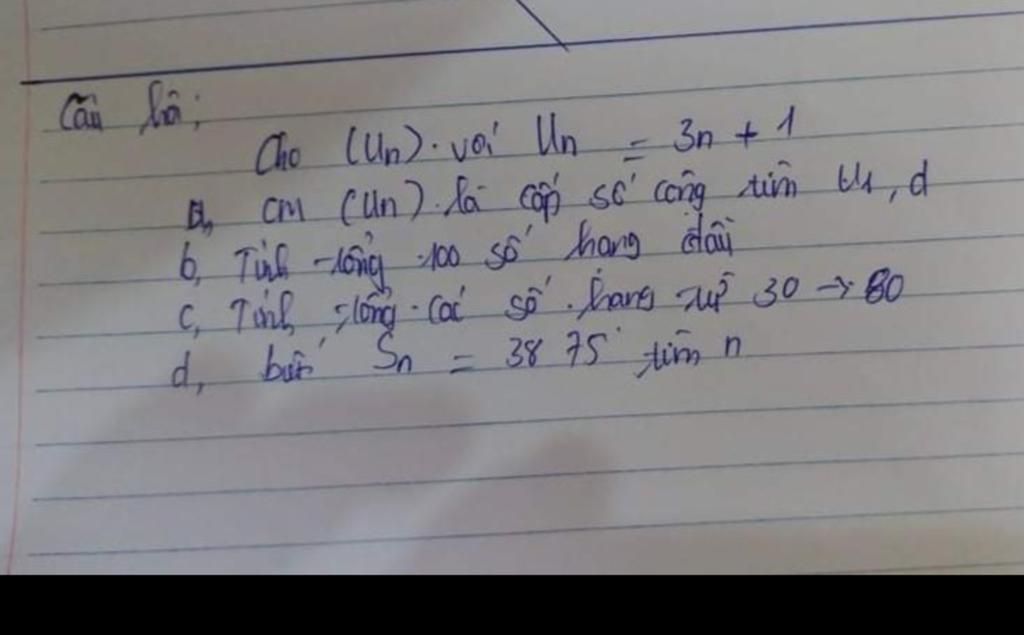 Câu hỏi:
Cho (Un). với Un = 3n + 1
a, CM (Un). là cấp số công tìm U1, d
b, Tính tổng 100 số hang đầu
c, Tính tổng. các số hang từ 30 → 80
d, biết Sn = 3875 tìm n